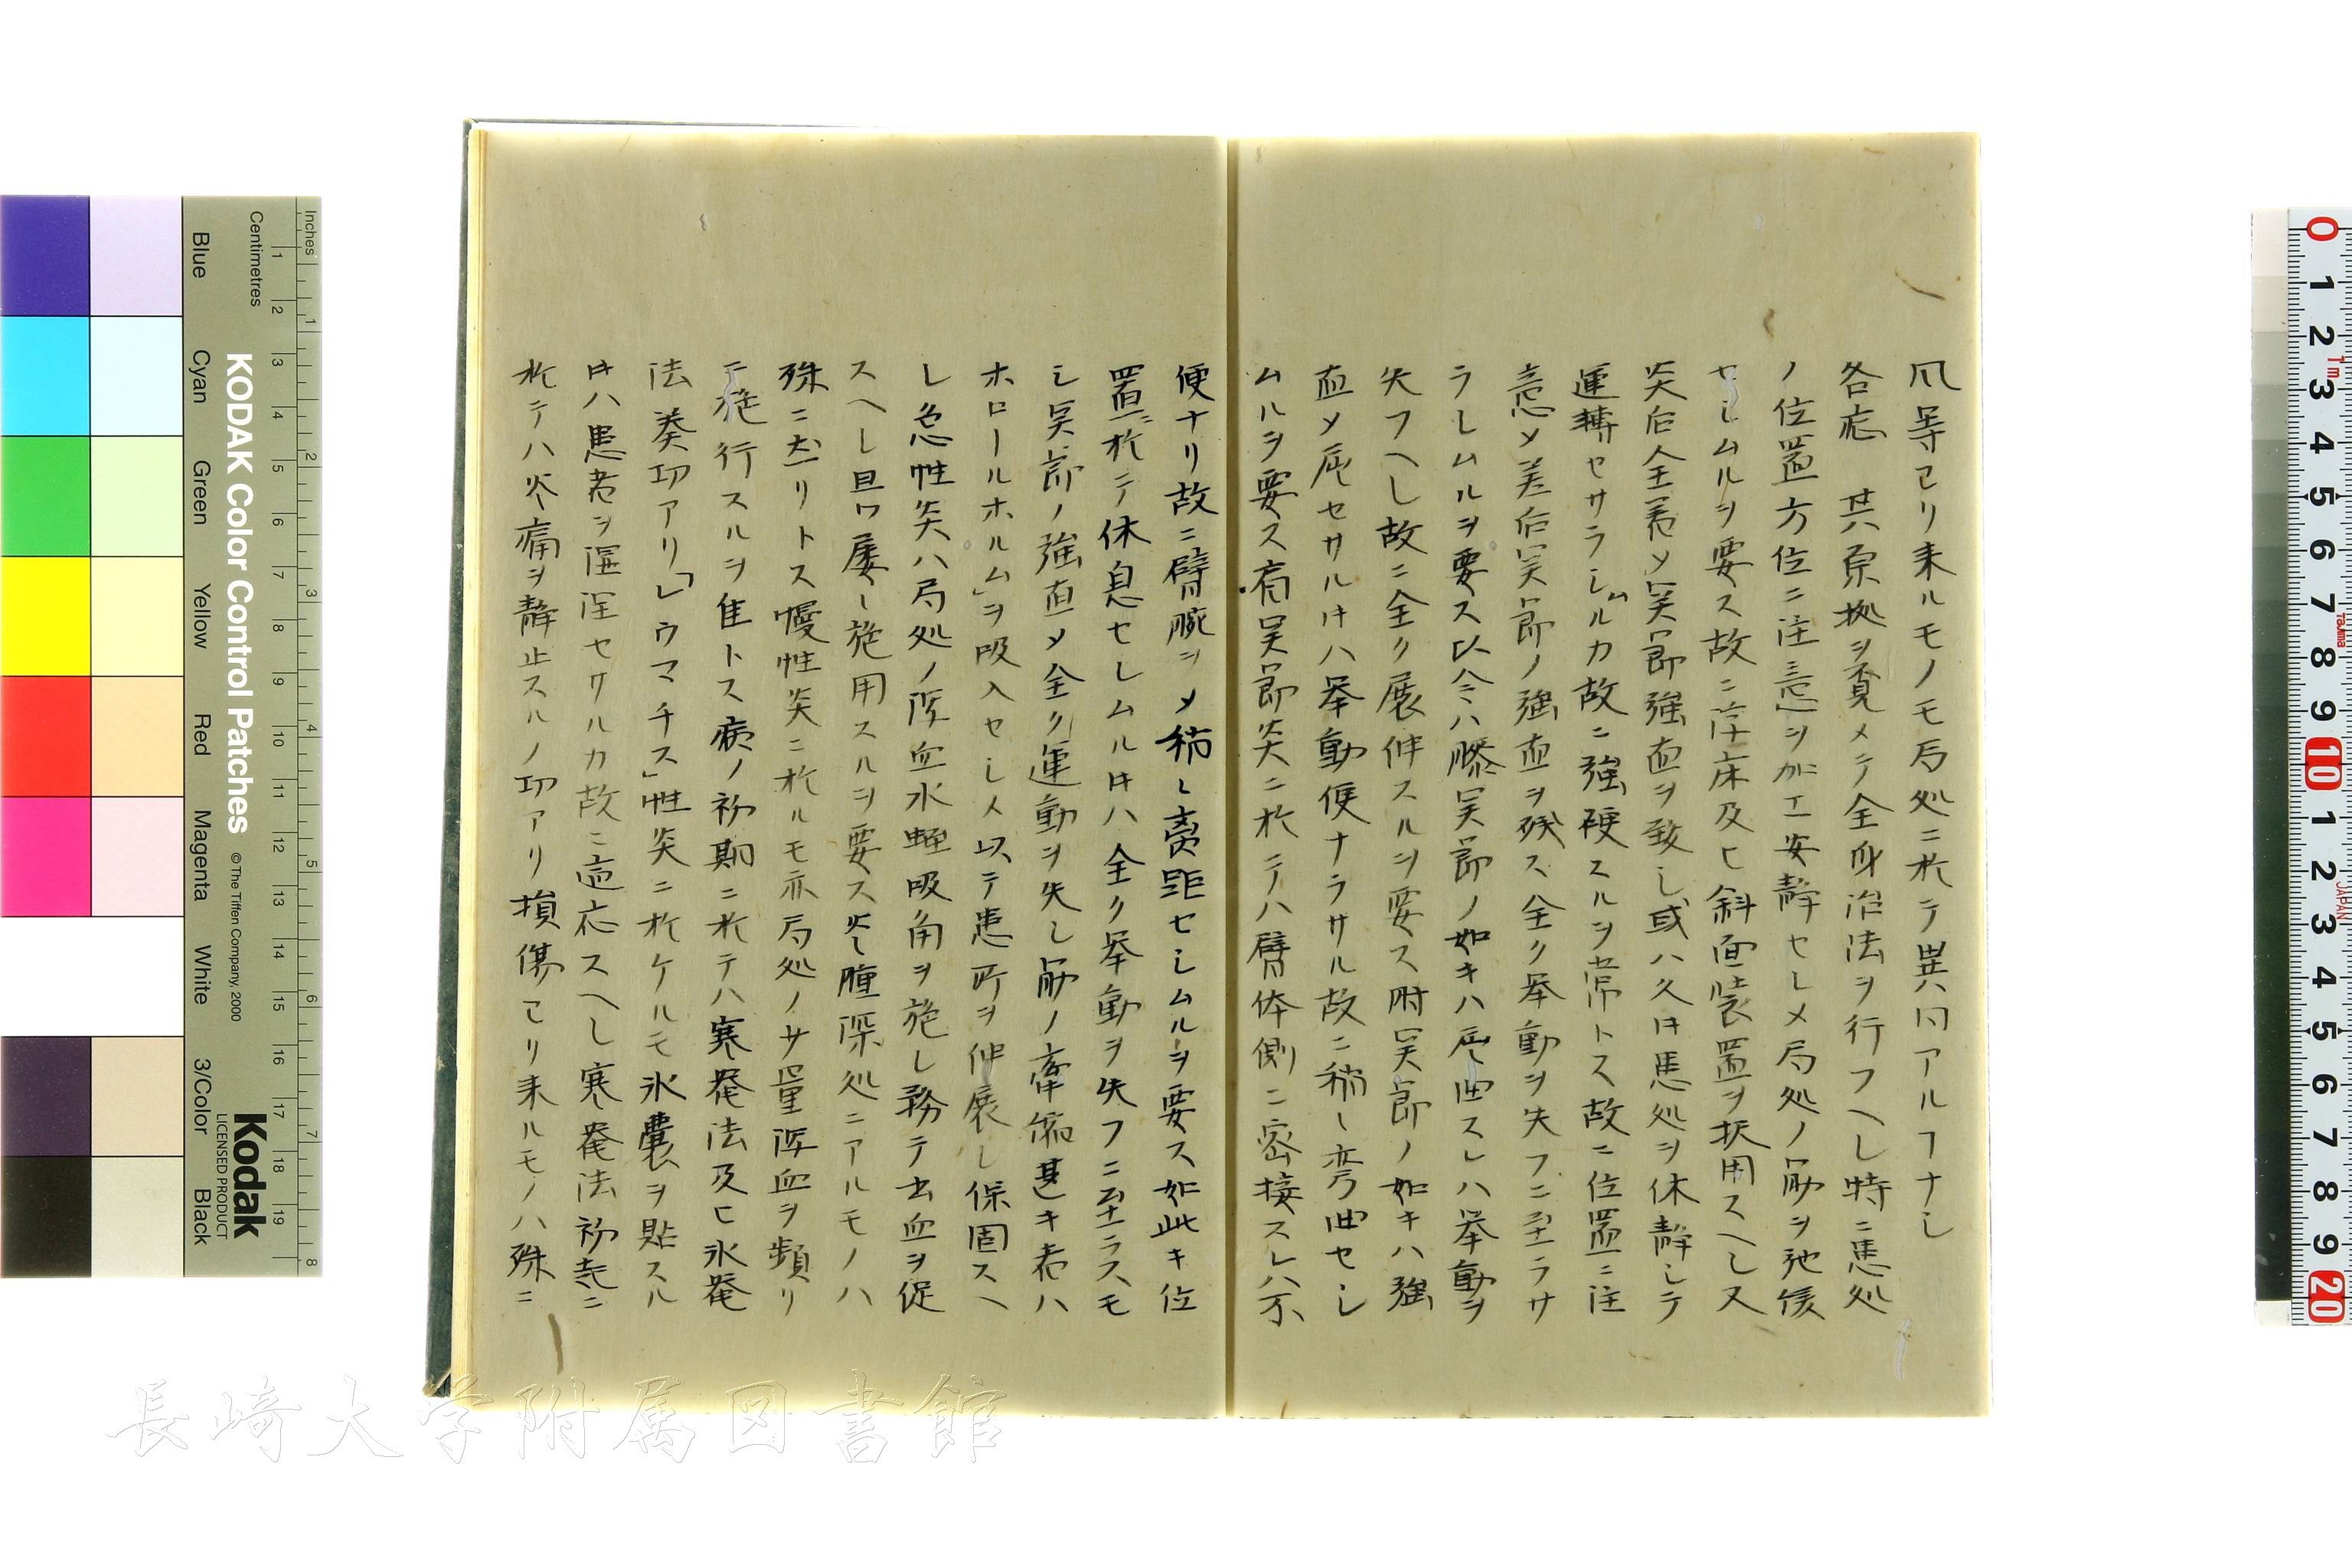 爪等ヨリ来ルモノモ局処ニ於テ異同アルヿナシ
各応 其原拠ヲ覔メテ全身治法ヲ行フヘシ特ニ患処
ノ位置方位ニ注意ヲ加エ安静セシメ局処ノ筋ヲ弛緩
セシムルヲ要ス故ニ浮床及ヒ斜面装置ヲ択用スヘシ又
炎后全差乄関節強直ヲ致シ或ハ久ク患処ヲ休静シテ
運轉セサラシムルカ故ニ強硬スルヲ常トス故ニ位置ニ注
意乄差后関節ノ強直ヲ残ス全ク挙動ヲ失フニ至ラサ
ラシムルヲ要ス以令ハ膝関節ノ如キハ屈曲スレハ挙動ヲ
失フヘシ故ニ全ク展伸スルヲ要ス肘関節ノ如キハ強
直乄屈セサル𪜈ハ挙動便ナラサル故ニ稍〻弯曲セシ
ムルヲ要ス肩関節炎ニ於テハ臂体側ニ密接スレハ不
便ナリ故ニ臂腕ヲ乄稍〻離距セシムルヲ要ス如此キ位
置ニ於テ休息セシムル𪜈ハ全ク挙動ヲ失フニ至ラスモ
シ関節ノ強直乄全ク運動ヲ失シ筋ノ牽縮甚キ者ハ
ホロールホルム」ヲ吸入セシメ以テ患所ヲ伸展シ保固スヘ
シ急性炎ハ局処ノ浮血水蛭吸角ヲ施シ務テ去血ヲ促
スヘシ且ツ屡〻施用スルヲ要ス炎腫深処ニアルモノハ
殊ニ尤リトス慢性炎ニ於ルモ亦局処ノサ量浮血ヲ頻リ
ニ施行スルヲ佳トス病ノ初期ニ於テハ寒罨法及ヒ氷罨
法奏功アリ「レウマチス」性炎ニ於ケルモ氷嚢ヲ貼スル
𪜈ハ患者ヲ湿淫セサルカ故ニ適応スヘシ寒罨法初起ニ
於テハ炎痛ヲ静止スルノ功アリ損傷ヨリ来ルモノハ殊ニ
Inches
Centimetres
KODAK Color Control Patches
©The Tiffen Company, 2000
Kodak
LICENSED PRODUCT
Blue
Cyan
Green
Yellow
Red
Magenta
White
3/Color
Black
長崎大学附属図書館